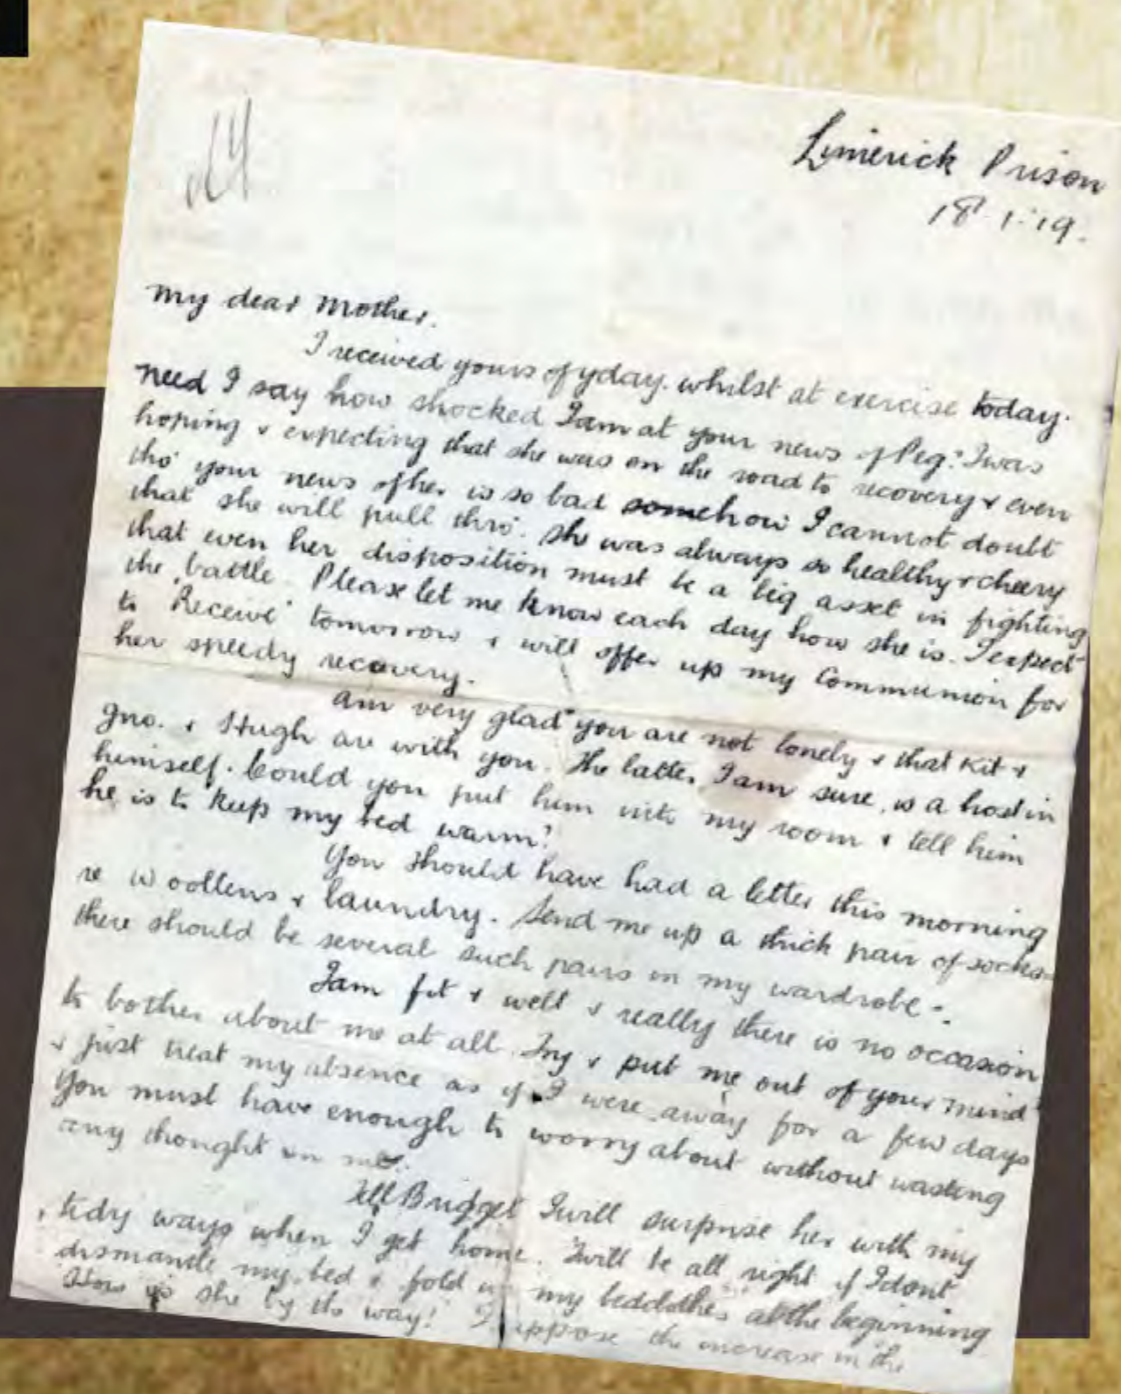 Limerick Prison
18.1.19.
My dear Mother.
I received yours of yday. whilst at exercise today.
Need I say how shocked I am at your news of Peg. I was
hoping & expecting that she was on the road to recovery & even
tho' your news of her is so bad somehow I cannot doubt
that she will pull thro'. She was always so healthy & cheery
that even her disposition must be a big asset in fighting
the battle. Please let me know each day how she is. I expect
to 'Receive' tomorrow & will offer up my Communion for
her speedy recovery.
Am very glad you are not lonely & that Kit &
Jno. & Hugh are with you. The latter, I am sure, is a host in
himself. Could you put him into my room & tell him
he is to keep my bed warm?
You should have had a letter this morning
re woollens & laundry. Send me up a thick pair of socks -
there should be several such pairs in my wardrobe -.
I am fit & well & really there is no occasion
to bother about me at all. Try & put me out of your mind
& just treat my absence as if I were away for a few days
You must have enough to worry about without wasting
any thought on me.
Tell Bridget I will surprise her with my
tidy ways when I get home. Twill be all right if I dont
dismantle my bed & fold up my bedclothes at the beginning
How is she by the way? I suppose the increase in the